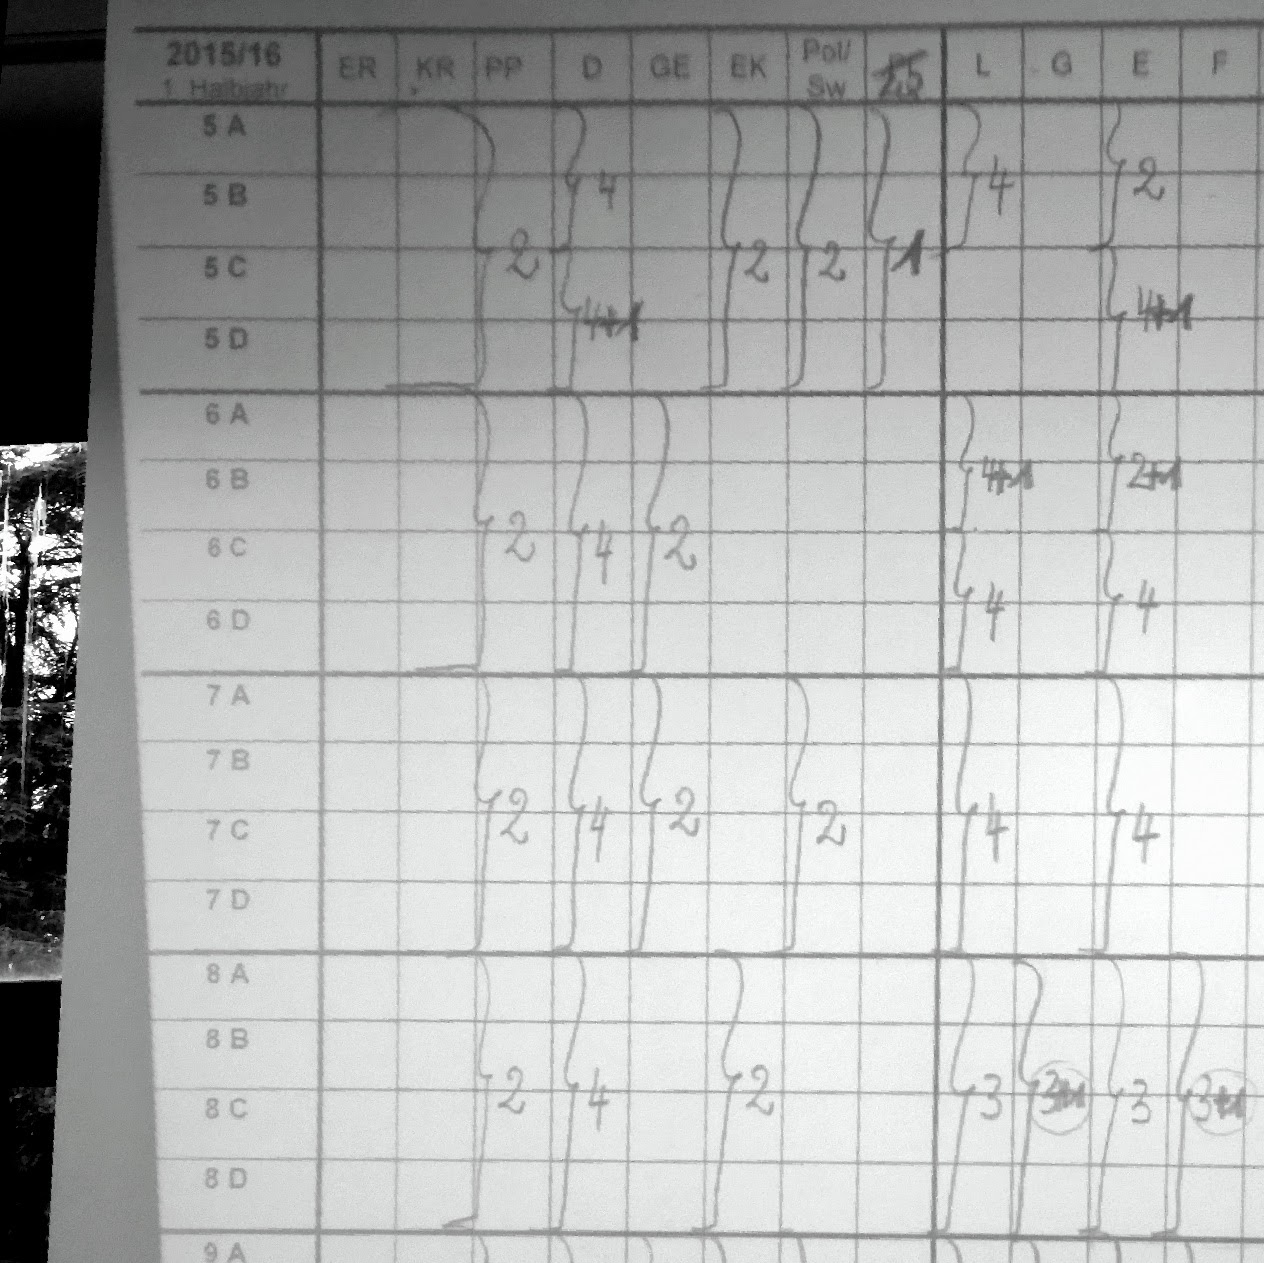 2015/16 ER KR PP D GE EK Pol/ L G E F
1. Halbjahr Sw
5 A
4 4 2
5 B
2 2 2 1
5 C
4+1 4+1
5 D
6 A
4+1 2+1
6 B
2 4 2
6 C
4 4
6 D
7 A
7 B
2 4 2 2 4 4
7 C
7 D
8 A
8 B
2 4 2 3 3+1 3 3+1
8 C
8 D
9 A